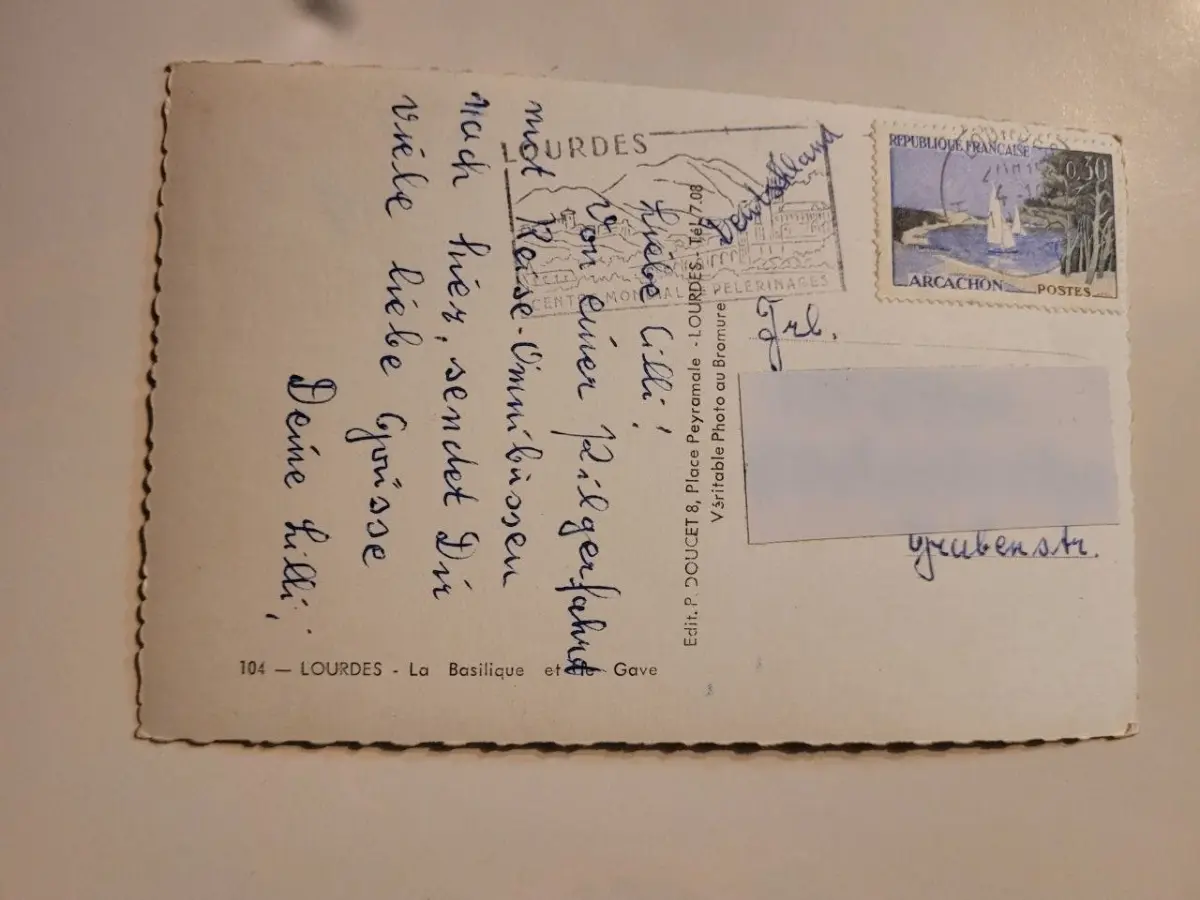 Liebe Cilli!
Von einer Pilgerfahrt
mot Reise-Omnibussen
nach hier, sendet Dir
viele liebe Grüsse
Deine Lilli,
104 — LOURDES - La Basilique et Gave
Edit. P. DOUCET 8, Place Peyramale - LOURDES - Tél. 7.08
Véritable Photo au Bromure
LOURDES
CENTRE MONDIAL PELERINAGES
REPUBLIQUE FRANCAISE
0,30
ARCACHON
POSTES
Deutschland
Frl.
Grubenstr.